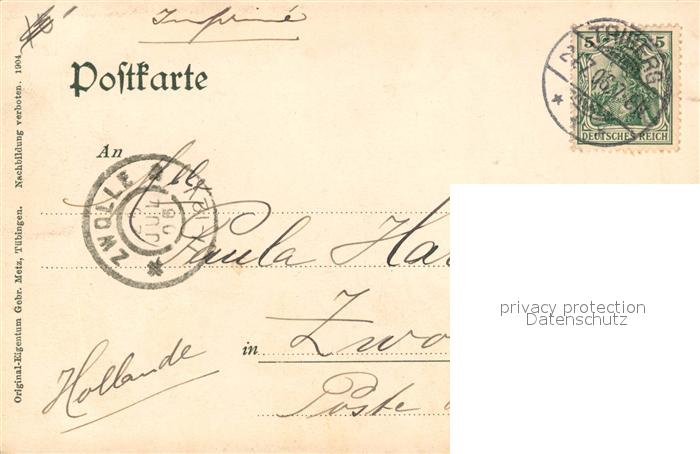 Imprimé
Postkarte
5 5
TRIBERG
DEUTSCHES REICH
Nachbildung verboten. 1904.
Original-Eigentum Gebr. Metz, Tübingen.
An
ZWOLLE
Paula Ha
in Zwo
Hollande
Poste
privacy protection
Datenschutz